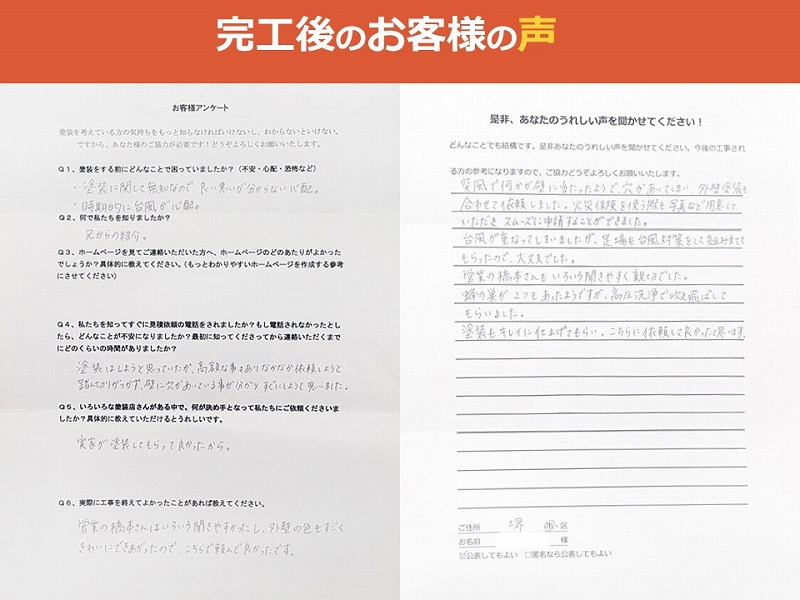 完工後のお客様の声
お客様アンケート
塗装を考えている方の気持ちをもっと知らなければいけないし、わからないといけない。
ですから、あなた様のご協力が必要です！どうぞよろしくお願いいたします。
Q１、塗装をする前にどんなことで困っていましたか？（不安・心配・恐怖など）
・塗装に関して無知なので、良い悪いが分からない心配。
・時期的に台風が心配。
Q２、何で私たちを知りましたか？
兄からの紹介。
Q３、ホームページを見てご連絡いただいた方へ、ホームページのどのあたりがよかった
でしょうか？具体的に教えてください。（もっとわかりやすいホームページを作成する参考
にさせてください）
Q４、私たちを知ってすぐに見積依頼の電話をされましたか？もし電話されなかったとし
たら、どんなことが不安になりましたか？最初に知ってくださってから連絡いただくまで
にどのくらいの時間がありましたか？
塗装はしようと思っていたが、高額な事もありなかなか依頼しようと
踏んたりがつかず、壁に穴があいている事が分かり すぐにしようと思いました。
Q５、いろいろな塗装店さんがある中で、何が決め手となって私たちにご依頼くださいま
したか？具体的に教えていただけるとうれしいです。
実家が塗装してもらって良かったから。
Q６、実際に工事を終えてよかったことがあれば教えてください。
営業の橋本さんはいろいろ聞きやすかったし、外壁の色もすごく
きれいにできあがったので、こちらで頼んで良かったです。
是非、あなたのうれしい声を聞かせてください！
どんなことでも結構です。是非あなたのうれしい声を聞かせてください。今後の工事され
る方の参考になりますので、ご協力どうぞよろしくお願いいたします。
突風で何かが壁に当たったようで、穴があいてしまい、外壁塗装も
合わせて依頼しました。火災保険を使う際も写真など用意して
いただき スムーズに申請することができました。
台風が重なってしまいましたが、足場も台風対策をして組みたてて
もらったので、大丈夫でした。
営業の橋本さんもいろいろ聞きやすく親切でした。
蜂の巣が２つもあったようですが、高圧洗浄で吹き飛ばして
もらいました。
塗装もキレイに仕上げてもらい、こちらに依頼して良かったと思います。
ご住所 堺 市・区
お名前 様
☑公表してもよい □匿名なら公表してもよい